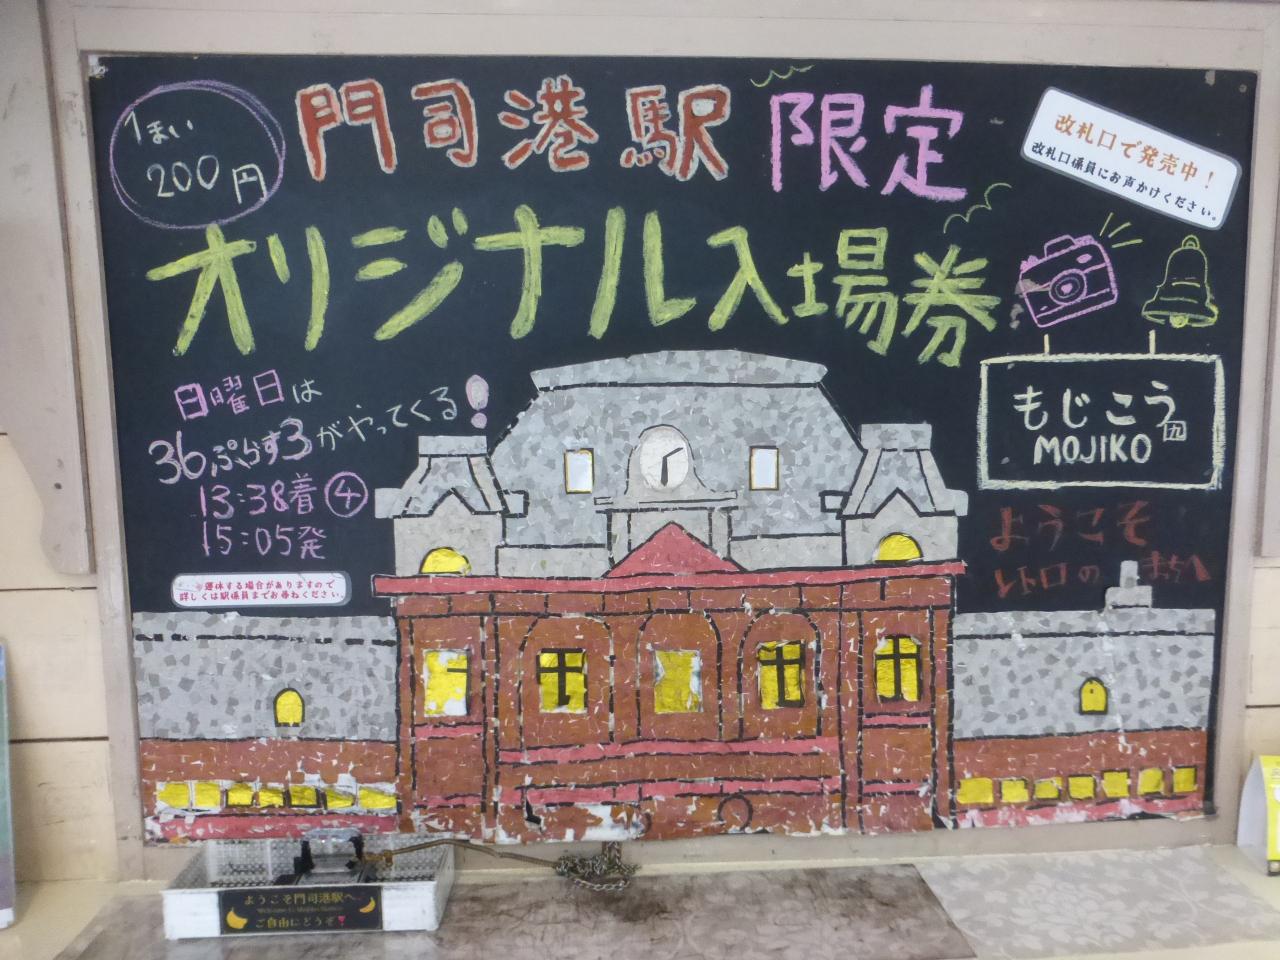 1まい
200円
門司港駅 限定
オリジナル入場券
改札口で発売中!
改札口係員にお声かけください。
日曜日は
36ぷらす3がやってくる!
13:38着 ④
15:05発
運休する場合がありますので
詳しくは駅係員までお尋ねください。
もじこう 九
MOJIKO
ようこそ
レトロのまちへ
ようこそ門司港駅へ
ご自由にどうぞ